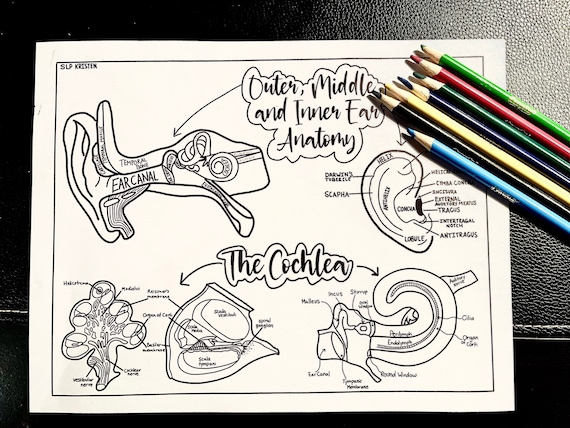 SLP KRISTEN
Outer, Middle,
and Inner Ear
Anatomy
TEMPORAL
BONE
EAR CANAL
HELIX
DARWIN'S
TUBERCLE
SCAPHA
ANTIHELIX
CYMBA CONCHA
INCISURA
CONCHA
EXTERNAL
AUDITORY MEATUS
TRAGUS
INTERTRAGAL
NOTCH
LOBULE
ANTITRAGUS
The Cochlea
Helicotrema
Modiolus
Reissner's
membrane
Organ of Corti
Basilar
membrane
Vestibular
nerve
Cochlear
nerve
Scala
Vestibuli
Scala
Media
Scala
tympani
spiral
ganglion
Malleus
Incus
Stirrup
oval
window
Perilymph
Endolymph
Ear Canal
Tympanic
Membrane
Round Window
Auditory
nerve
Cilia
Organ
of Corti